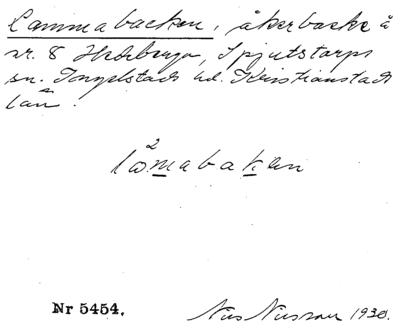 Lammabacken, åkerbacke å
nr. 8 Hedeberga, Spjutstorps
sn. Ingelstads hd. Kristianstads
län.
2
lamabaken
Nr 5454.
Nils Nilsson 1930.